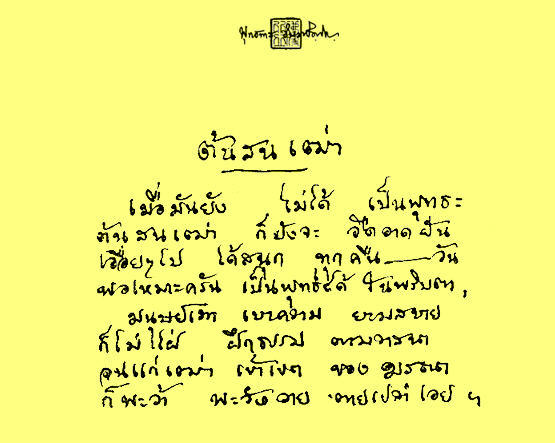 ต้นสนเฒ่า
เมื่อมันยัง ไม่ได้ เป็นพุทธะ
ต้นสนเฒ่า ก็ยังจะ อืดอาด ฝัน
เรื่อยๆไป ได้สนุก ทุกคืน — วัน
พอเหมาะครัน เป็นพุทธะได้ ในพริบตา,
มนุษย์เรา ยามสบาย
ก็ไม่ใฝ่ ฝึกธรรม ตามวาสนา
จนแก่เฒ่า เข้าเขต ของ มรณา
ก็ พะว้า พะวังวาย ตายเปล่า เอย ฯ